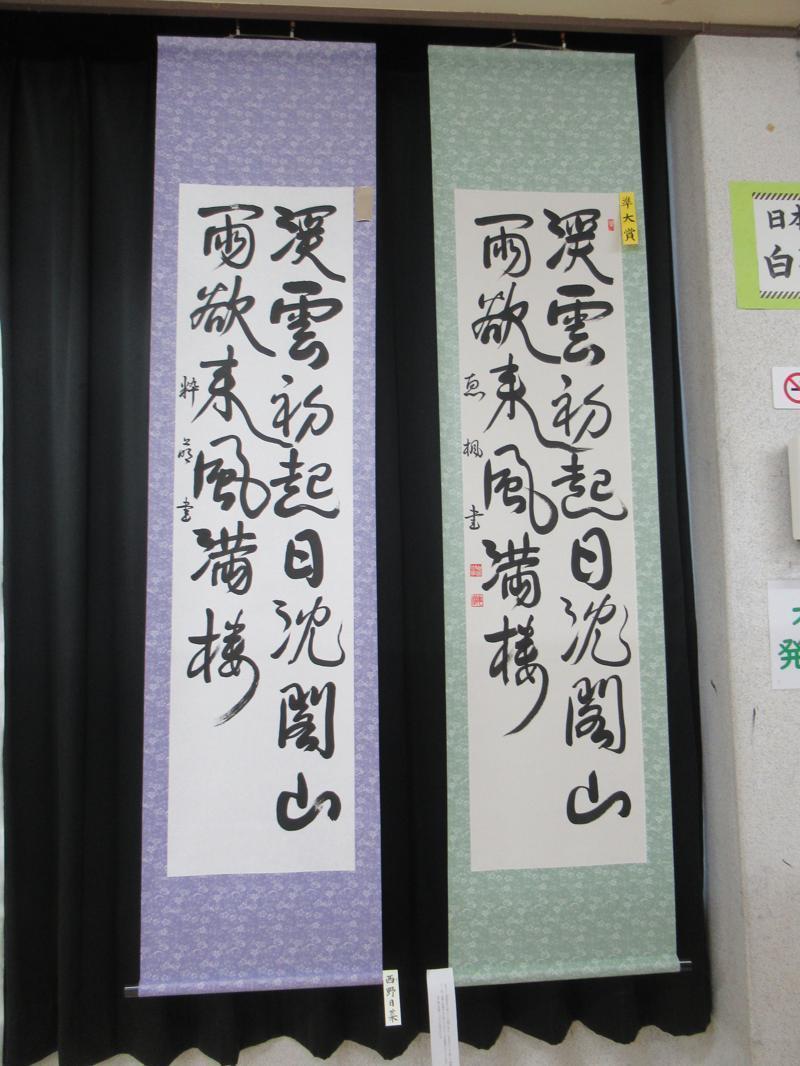 準大賞
溪雲初起日沈閣山
雨欲来風満楼
恵楓書
溪雲初起日沈閣山
雨欲来風満楼
粋萌書
西野日菜
日本
白
発